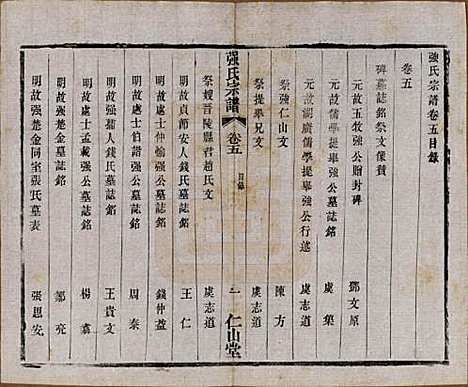 強氏宗譜卷五目錄
卷五
碑墓誌銘祭文像贊
元故五牧強公贈封碑 鄧文原
元故儒學提舉強公墓誌銘 虞集
元故湖廣儒學提舉強公行述 虞志道
祭強仁山文 陳方
祭提舉兄文 虞志道
強氏宗譜 卷五 目錄 一 仁山堂
祭嫂晉陵縣君趙氏文 虞志道
明故貞節安人錢氏墓誌銘 王仁
明故處士仲愉強公墓誌銘 錢仲益
明故處士伯譜強公墓誌銘 周泰
明故強孺人錢氏墓誌銘 王貢文
明故處士孟載強公墓誌銘 楊翥
明故強楚金墓誌銘 鄒亮
明故強楚金同室張氏墓表 張思安